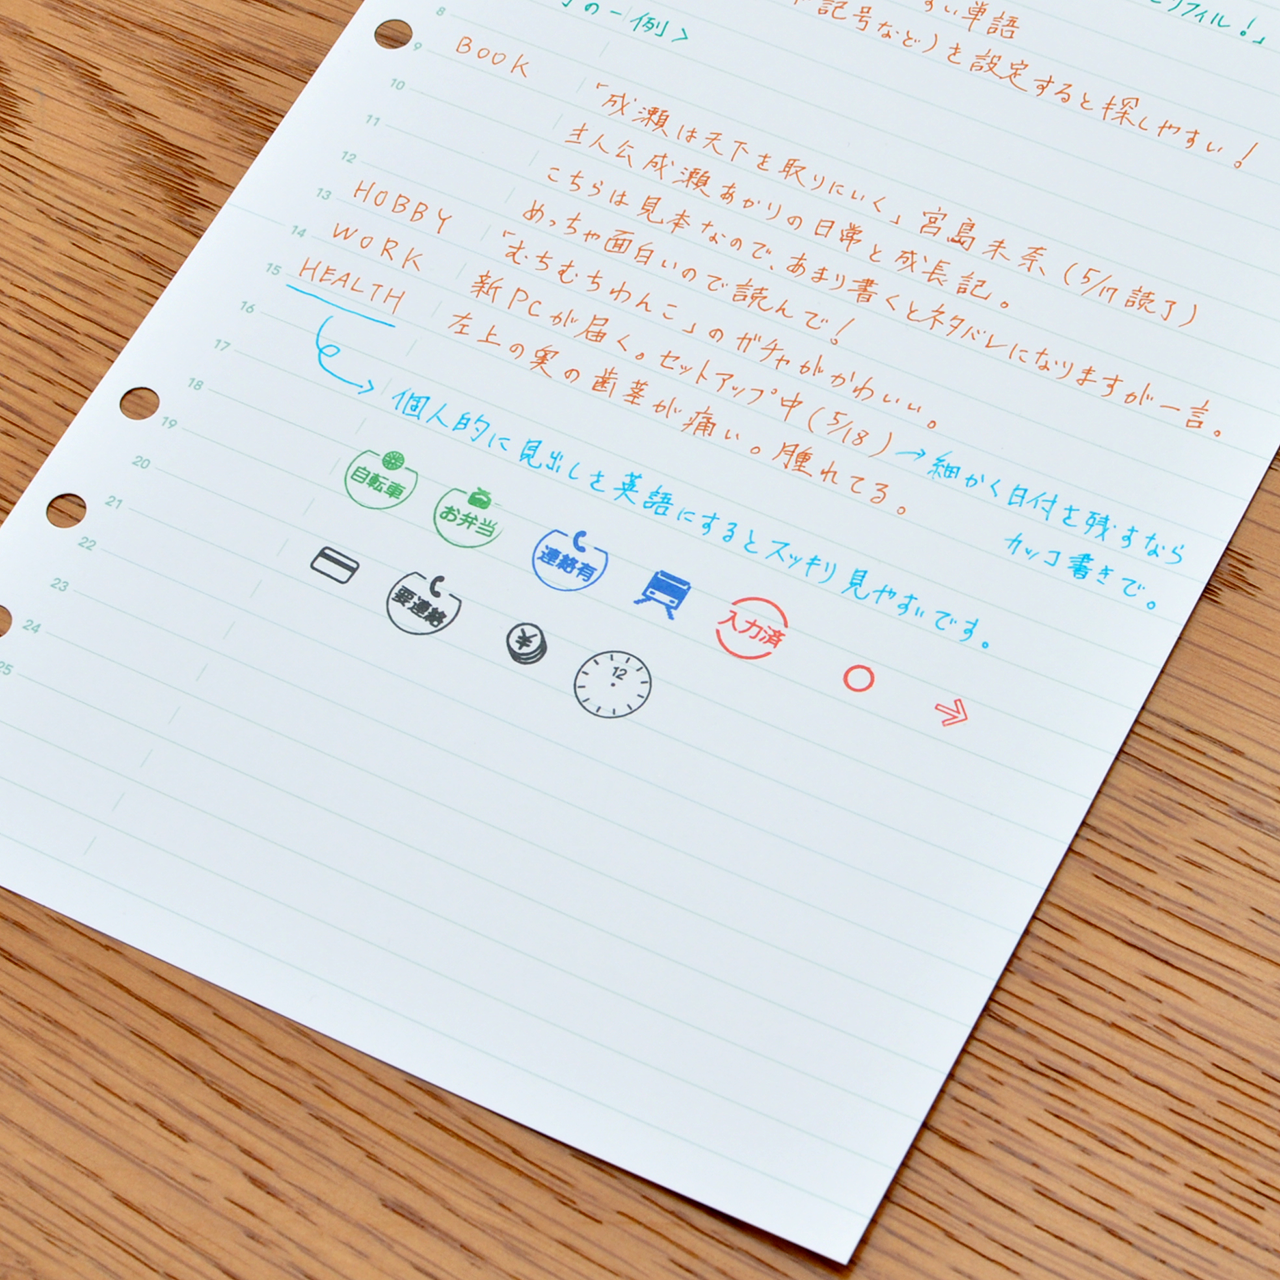 リフィル！」
の一例>
すい単語
記号など)を設定すると探しやすい！
8
9
BOOK
「成瀬は天下を取りにいく」宮島未奈(5/17読了)
10
主人公成瀬あかりの日常と成長記。
11
こちらは見本なので、あまり書くとネタバレになりますが一言。
12
めっちゃ面白いので読んで！
13
HOBBY
「むちむちわんこ」のガチャがかわいい。
14
WORK
新PCが届く。セットアップ中(5/18)→細かく日付を残すなら
カッコ書きで。
15
HEALTH
左上の奥の歯茎が痛い。腫れてる。
16
個人的に見出しを英語にするとスッキリ見やすいです。
17
18
自転車
お弁当
連絡有
入力済
19
要連絡
¥
12
20
21
22
23
24
25